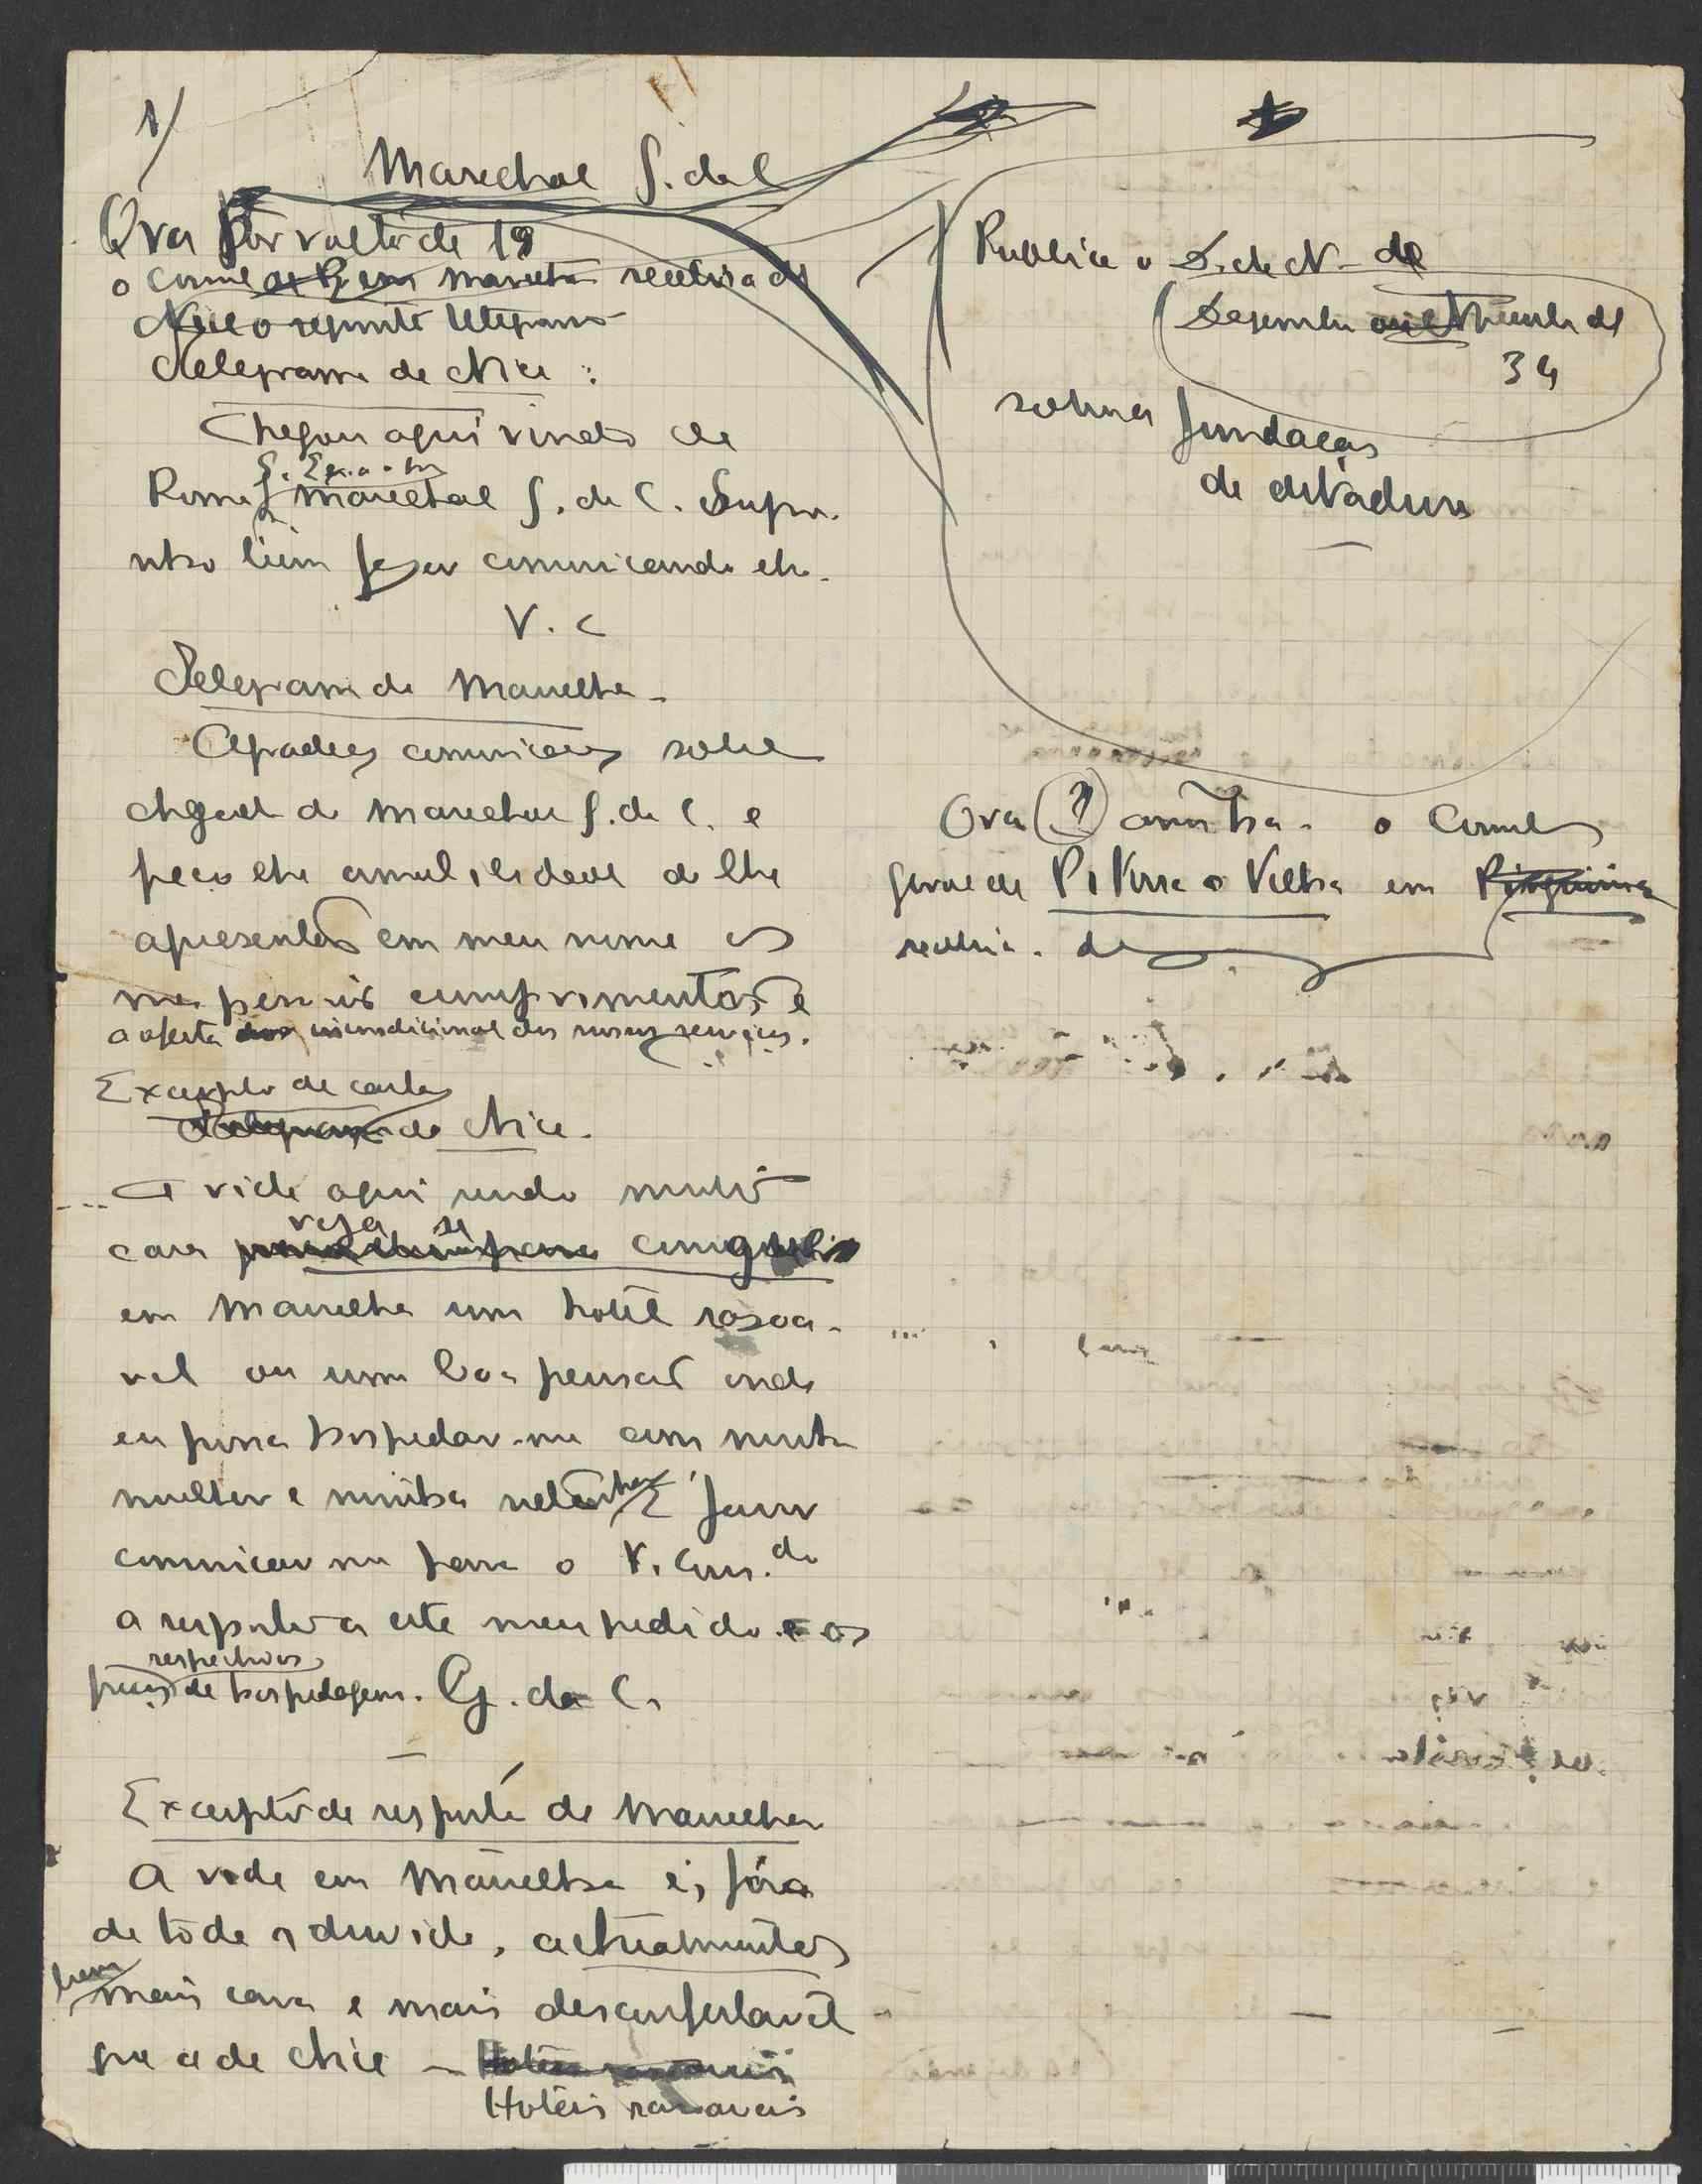 1/
Marechal G. da C
Ora por volta de 19
o consul em Marselha recebia de
Nice o seguinte telegrama
Telegrama de Nice :
Chegou aqui vindo de
S. Ex.a o Snr
Roma marechal G. da C. Supo-
nho bem fazer comunicando-lhe.
V. C
Telegrama de Marselha -
Agradeço comunicação sobre
chegada do marechal G. da C. e
peço-lhe amabilidade de lhe
apresentar em meu nome os
meus cumprimentos e
a oferta incondicional dos nossos serviços.
Excerpto de carta
Telegrama de Nice.
A vida aqui sendo muito
veja se
cara
em Marselha um hotel rasoa-
vel ou uma boa pensão onde
eu possa hospedar-me com minha
mulher e minha neta favor
comunicar-me para o V. Cons.do
a resposta a este meu pedido e os
respectivos
preços de hospedagem. G. da C.
Excerpto de resposta de Marselha
A vida em Marselha é, fóra
de tôda a duvida, actualmente
bem
mais cara e mais desconfortavel
que a de Nice - Hoteis rasoaveis
Hoteis rasoaveis
Publica o D. de N. de
(Dezembro de
34
sobre a fundação
da ditadura
Ora (?) o Consul
geral de P. Velha em
recebia. de